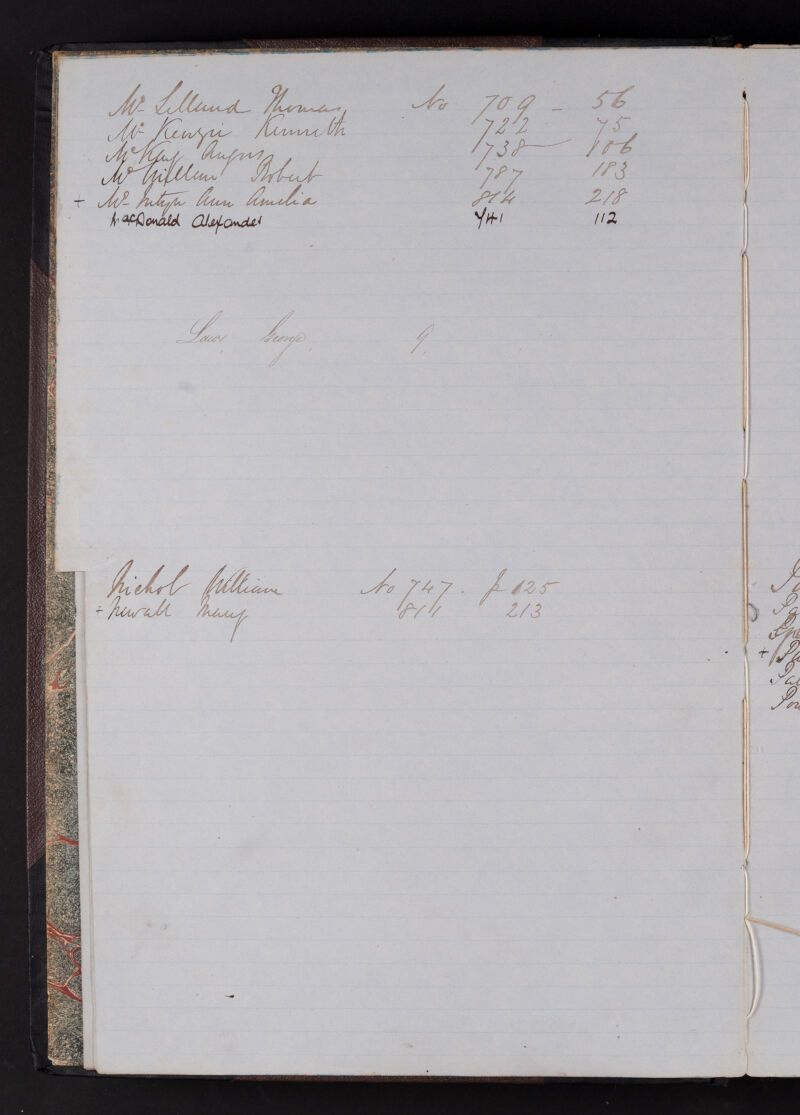 Mc Lelland Thomas No 709 - 56
Mc Kenzie Kenneth 722 75
McKay Angus 738 - 106
Mc Millan Robert 787 183
+ Mc Intyre Ann Amelia 814 218
MacDonald Alexander 741 112
Law George 9
Nichol William No 747. p 125
+ Newall Mary 811 213